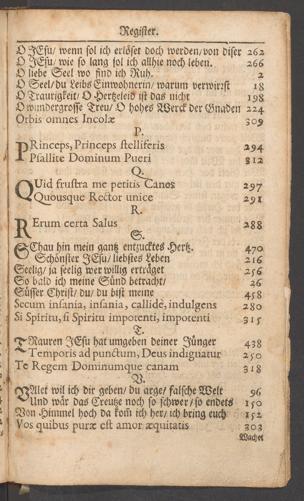 Register.
O JEsu/ wenn sol ich erlöset doch werden/ von diser 262
O JEsu/ wie so lang sol ich allhie noch leben. 266
O liebe Seel wo find ich Ruh. 2
O Seel/ du Leibs Einwohnerin/ warum verwirꝛst 18
O Traurigkeit/ O Hertzeleid ist das nicht 198
O wundergrosse Treu/ O hohes Werck der Gnaden 224
Orbis omnes Incolæ 309
P.
PRinceps, Princeps stelliferis 294
Psallite Dominum Pueri 312
Q.
QUid frustra me petitis Canos 297
Quousque Rector unice 291
R.
RErum certa Salus 288
S.
SChau hin mein gantz entzucktes Hertz. 470
Schönster JEsu/ liebstes Leben 216
Seelig/ ja seelig wer willig erträget 256
So bald ich meine Sünd betracht/ 26
Süsser Christ/ du/ du bist meine 458
Secum insania, insania, callide, indulgens 280
Si Spiritu, si Spiritu impotenti, impotenti 315
T.
TRauren JEsu hat umgeben deiner Jünger 438
Temporis ad punctum, Deus indignatur 250
Te Regem Dominumque canam 318
V.
VAllet wil ich dir geben/ du arge/ falsche Welt 96
Und wär das Creutze noch so schwer/ so endets 150
Von Himmel hoch da kom̃ ich her/ ich bring euch 152
Vos quibus puræ est amor æquitatis 303
Wachet